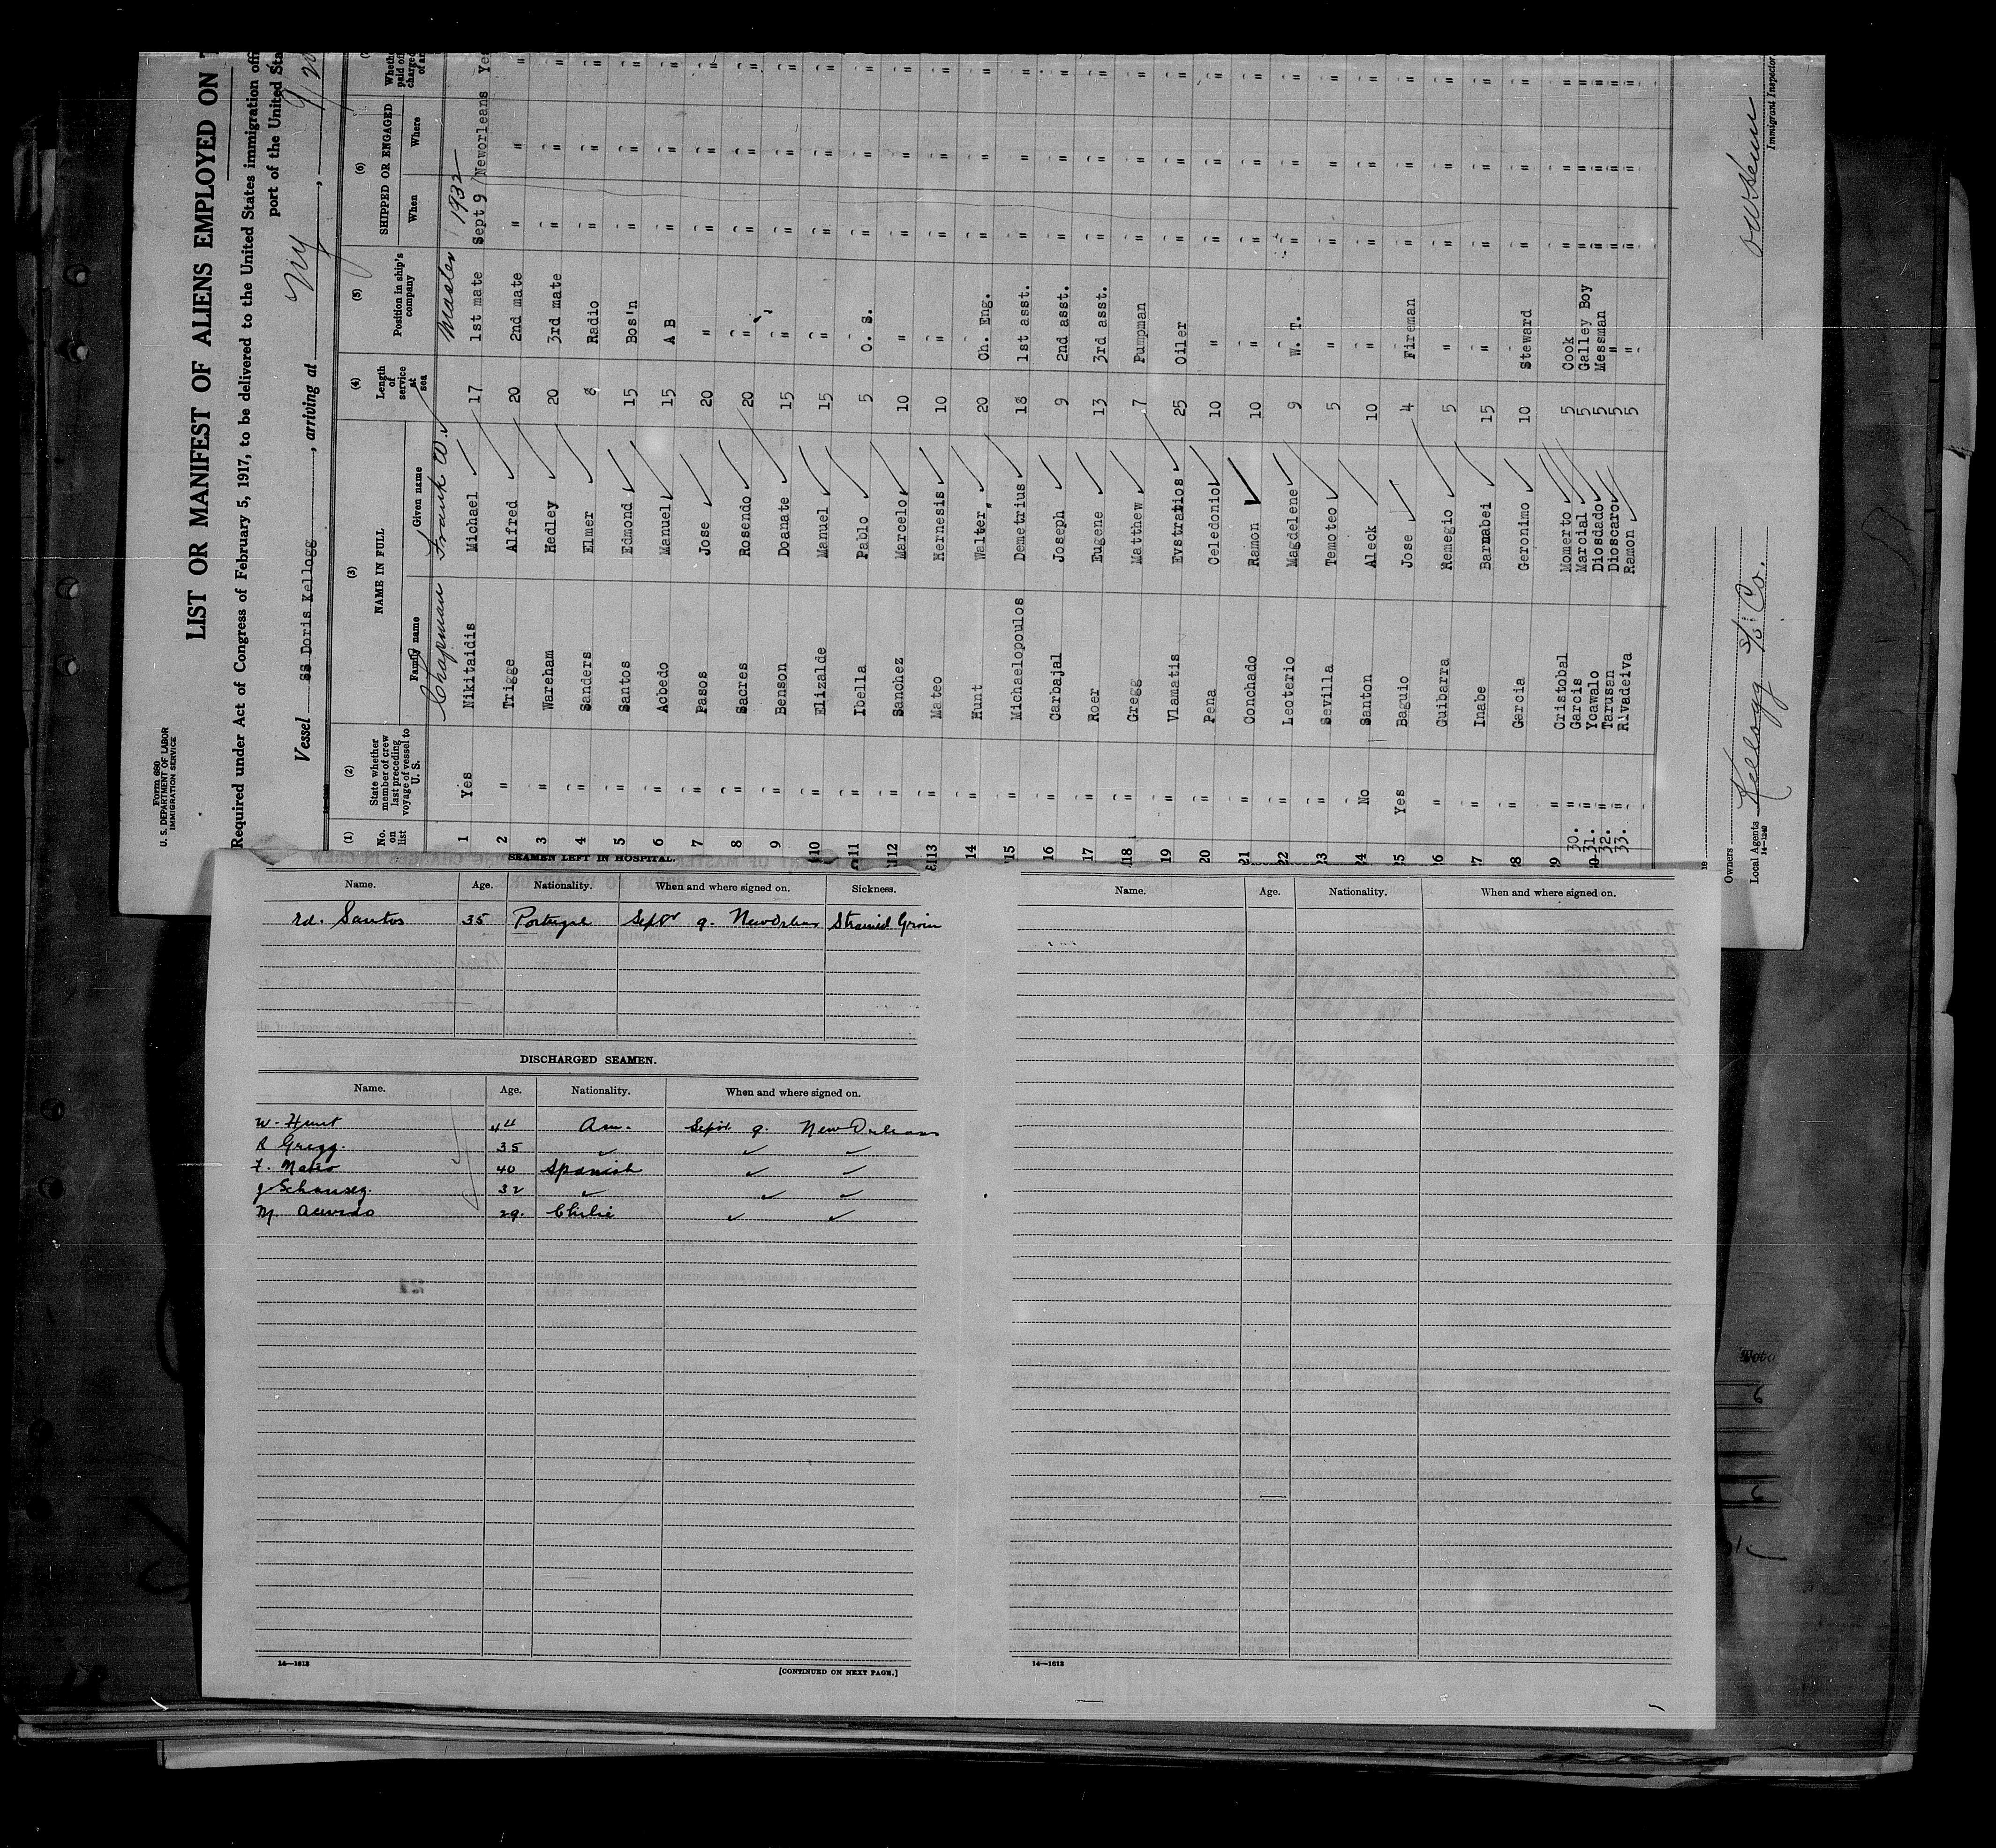 Form 680
U. S. DEPARTMENT OF LABOR
IMMIGRATION SERVICE
LIST OR MANIFEST OF ALIENS EMPLOYED ON
Required under Act of Congress of February 5, 1917, to be delivered to the United States immigration
port of the United
Vessel SS Doris Kellogg, arriving at NY, 9/20
(1) (2) (3) (4) (5) (6)
No. on list State whether member of crew last preceding voyage of vessel to U. S. NAME IN FULL Length of service at sea Position in ship's company SHIPPED OR ENGAGED
Family name Given name When Where
Chapman Frank W. Master 1932
1 Yes Nikitaidis Michael 17 1st mate Sept 9 Neworleans
2 " Trigge Alfred 20 2nd mate " " "
3 " Wareham Hedley 20 3rd mate " " "
4 " Sanders Elmer 8 Radio " " "
5 " Santos Edmond 15 Bos'n " " "
6 " Acbedo Manuel 15 A B " " "
7 " Pasos Jose 20 " " " "
8 " Sacres Rosendo 20 " " " "
9 " Benson Doanate 15 " " " "
10 " Elizalde Manuel 15 " " " "
11 " Ibella Pablo 5 O. S. " " "
12 " Sanchez Marcelo 10 " " " "
13 " Mateo Hernesis 10 " " " "
14 " Hunt Walter 20 Ch. Eng. " " "
15 " Michaelopoulos Demetrius 18 1st asst. " " "
16 " Carbajal Joseph 9 2nd asst. " " "
17 " Roer Eugene 13 3rd asst. " " "
18 " Gregg Matthew 7 Pumpman " " "
19 " Vlamatis Evstratios 25 Oiler " " "
20 " Pena Celedonio 10 " " " "
21 " Conchado Ramon 10 " " " "
22 " Leoterio Magdelene 9 W. T. " " "
23 " Sevilla Temoteo 5 " " " "
24 No Santon Aleck 10 " " " "
25 Yes Baguio Jose 4 Fireman " " "
26 " Guibarra Remegio 5 " " " "
27 " Inabe Barnabei 15 " " " "
28 " Garcia Geronimo 10 Steward " " "
29 " Cristobal Momerto 5 Cook " " "
30. " Garcis Marcial 5 Galley Boy " " "
31. " Ycawalo Diosdado 5 Messman " " "
32. " Tarusan Dioscaro 5 " " " "
33. " Rivadeiva Ramon 5 " " " "
Owners
Local Agents Kellogg SS Co.
14-1240
Immigrant Inspector
SEAMEN LEFT IN HOSPITAL.
Name. Age. Nationality. When and where signed on. Sickness.
rd. Santos 35 Portugal Sept 9. New Orleans Strained Groin
DISCHARGED SEAMEN.
Name. Age. Nationality. When and where signed on.
W. Hunt 44 Am. Sept 9. New Orleans
R Gregg. 35 ✓ ✓ ✓
F. Mateo 40 Spanish ✓ ✓
J 32 ✓ ✓ ✓
M. Acevedo 29. Chile ✓ ✓
14—1613
[CONTINUED ON NEXT PAGE.]
Name. Age. Nationality. When and where signed on.
14—1613